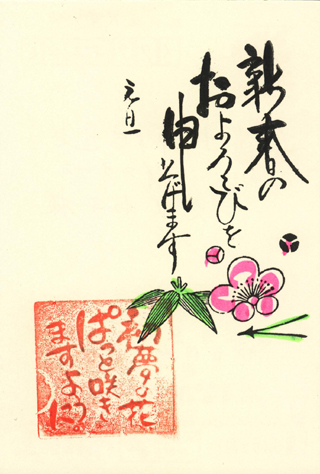 新春の
およろこびを
申し上げます
元旦
初夢の花
ぱっと咲き
ますように